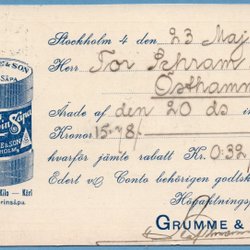 Stockholm 4 den 23 Maj
Herr Tor Schram
Östhamm
Arade af den 20 ds
Kronor 15:78/-
hvarför jämte rabatt Kr. 0:32
Edert v. Conto behörigen godtsk
Högaktningsf
GRUMME &
& SON
SÅPA
& SON
HOLM
Kilo - Kärl
rinsåpa